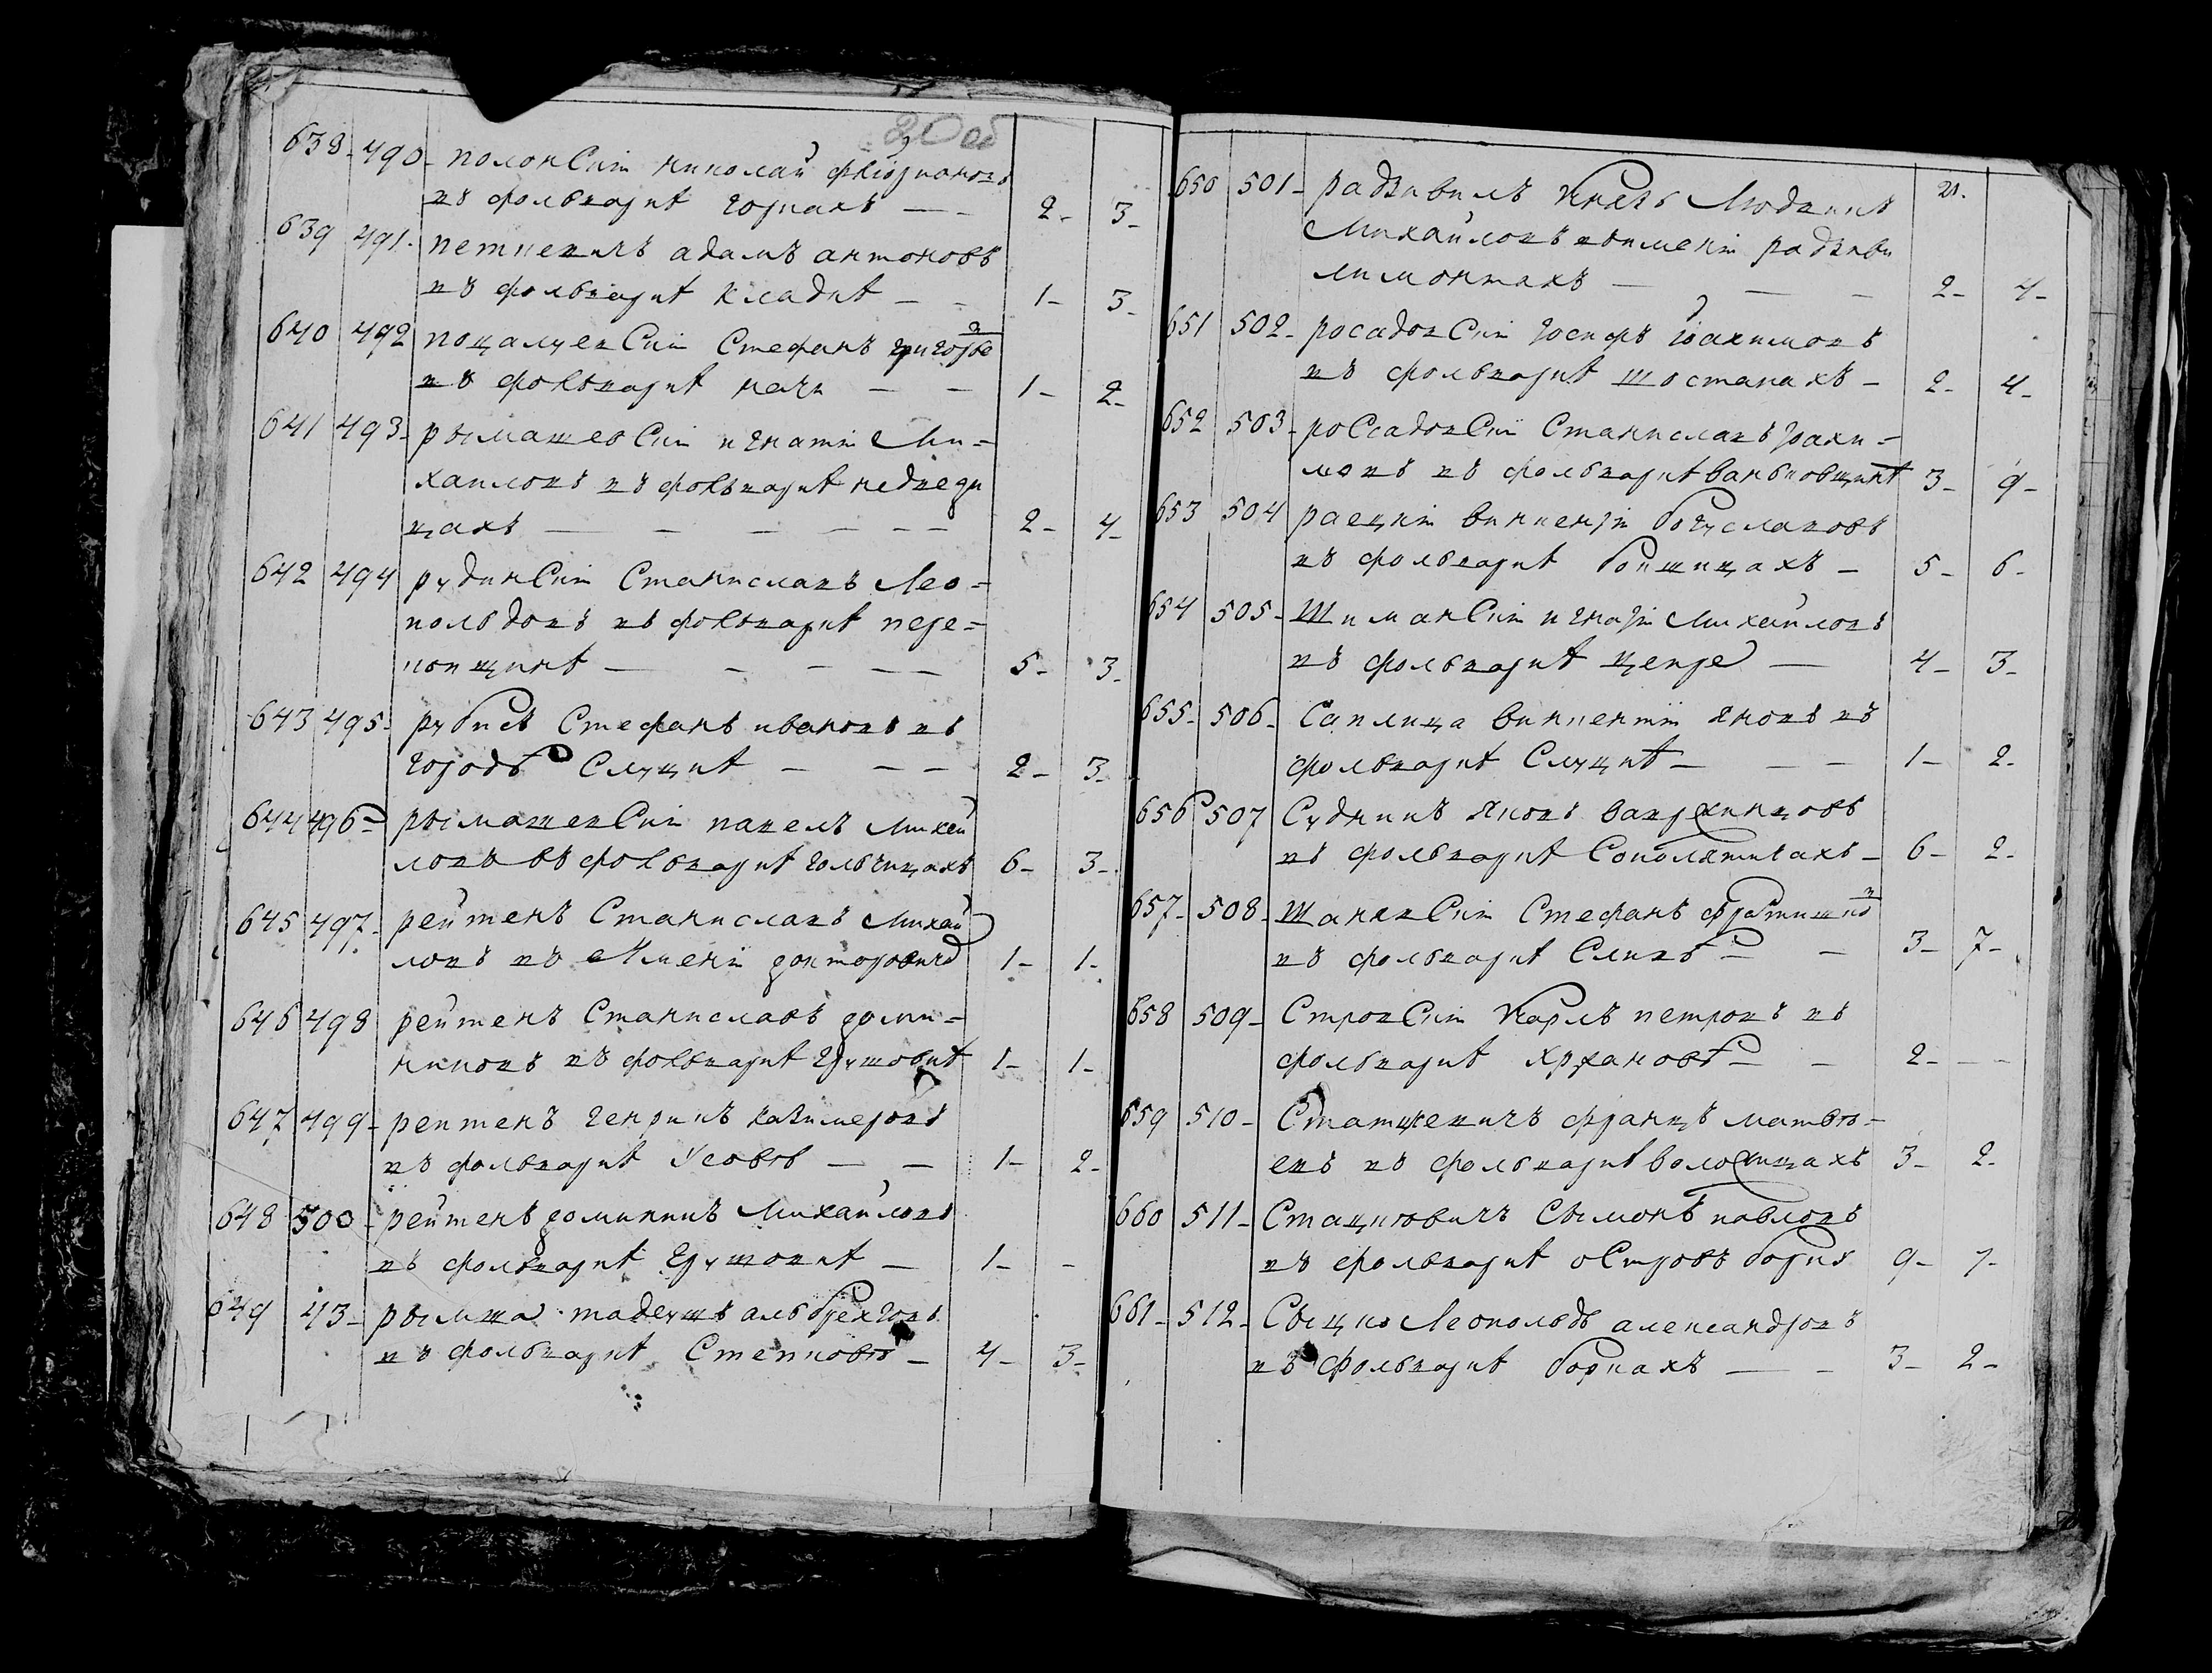 20 об
638 - 490 - полонскiи николай флiорiановъ
въ фольваркѣ горкахъ — — 2 - 3 -
639 491 - петкевичъ адамъ антоновъ
въ фольваркѣ кладкѣ — — 1 - 3
640 492 поцалуевскiи Стефанъ григорьев
въ фольваркѣ начи — — 1 - 2 -
641 493 - рымашевскiи игнатiи Ми=
хаиловъ въ фольваркѣ недведи
цахъ — — — — — 2 - 4 -
642 494 рудинскiи Станиславъ Лео=
польдовъ въ фольваркѣ пере=
ковщинѣ — — — — — 5 - 3 -
643 495 - рубисъ Стефанъ ивановъ въ
городѣ Слуцкѣ — — — 2 - 3 -
644 496 - рымашевскiи павелъ михай
ловъ въ фольваркѣ гольчицахъ 6 - 3 -
645 497 - рейтенъ Станиславъ михай
ловъ въ Имѣнiи докторовичѣ 1 - 1 -
646 498 рейтенъ Станиславъ доми=
никовъ въ фольваркѣ грушовкѣ 1 - 1 -
647 499 - рейтенъ генрикъ казимеровъ
въ фольваркѣ Усовѣ — — 1 - 2 -
648 500 - рейтенъ доминикъ михайловъ
въ фольваркѣ грушовкѣ — 1 - -
649 43 - рымша тадеушъ альбрехтовъ
въ фольваркѣ Степковѣ — 4 - 3 -
650 501 - радзивилъ Князь Людвикъ 21.
Михайловъ въимѣнiи радзиви
лимонтахъ — — — 2 - 4 -
651 502 - росадовскiи Iосифъ Iоахимовъ
въ фольваркѣ шостаках - 2 - 4 -
652 503 - россадовскiи Станиславъ Iоахи=
мовъ въ фольваркѣ ваньковщинѣ 3 - 9 -
653 504 раецкiи викентiи богуславовъ
въ фольваркѣ бокшицахъ — 5 - 6 -
654 505 - Шиманскiи игнатiи михайловъ
въ фольваркѣ цепре — 4 - 3 -
655 - 506 - Саплица викентiи яновъ въ
фольваркѣ Слуцкѣ — — — 1 - 2 -
656 507 Судникъ яковъ вавржинцовъ
въ фольваркѣ Соколятичахъ — 6 - 2 -
657 - 508 - Шанявскiи Стефанъ фрастишков
въ фольваркѣ Сливѣ — — 3 - 7 -
658 509 - Стровскiи Карлъ петровъ въ
фольваркѣ хржановѣ — — 2 - —
659 510 - Статкевичъ францъ матвѣ=
евъ въ фольваркѣ воложицахъ 3 - 2 -
660 511 - Стацкѣвичъ Сымонъ павловъ
въ фольваркѣ островѣ боркѣ 9 - 7 -
661 - 512 - Сыцко Леопольдъ александровъ
въ Фольваркѣ боркахъ — — 3 - 2 -